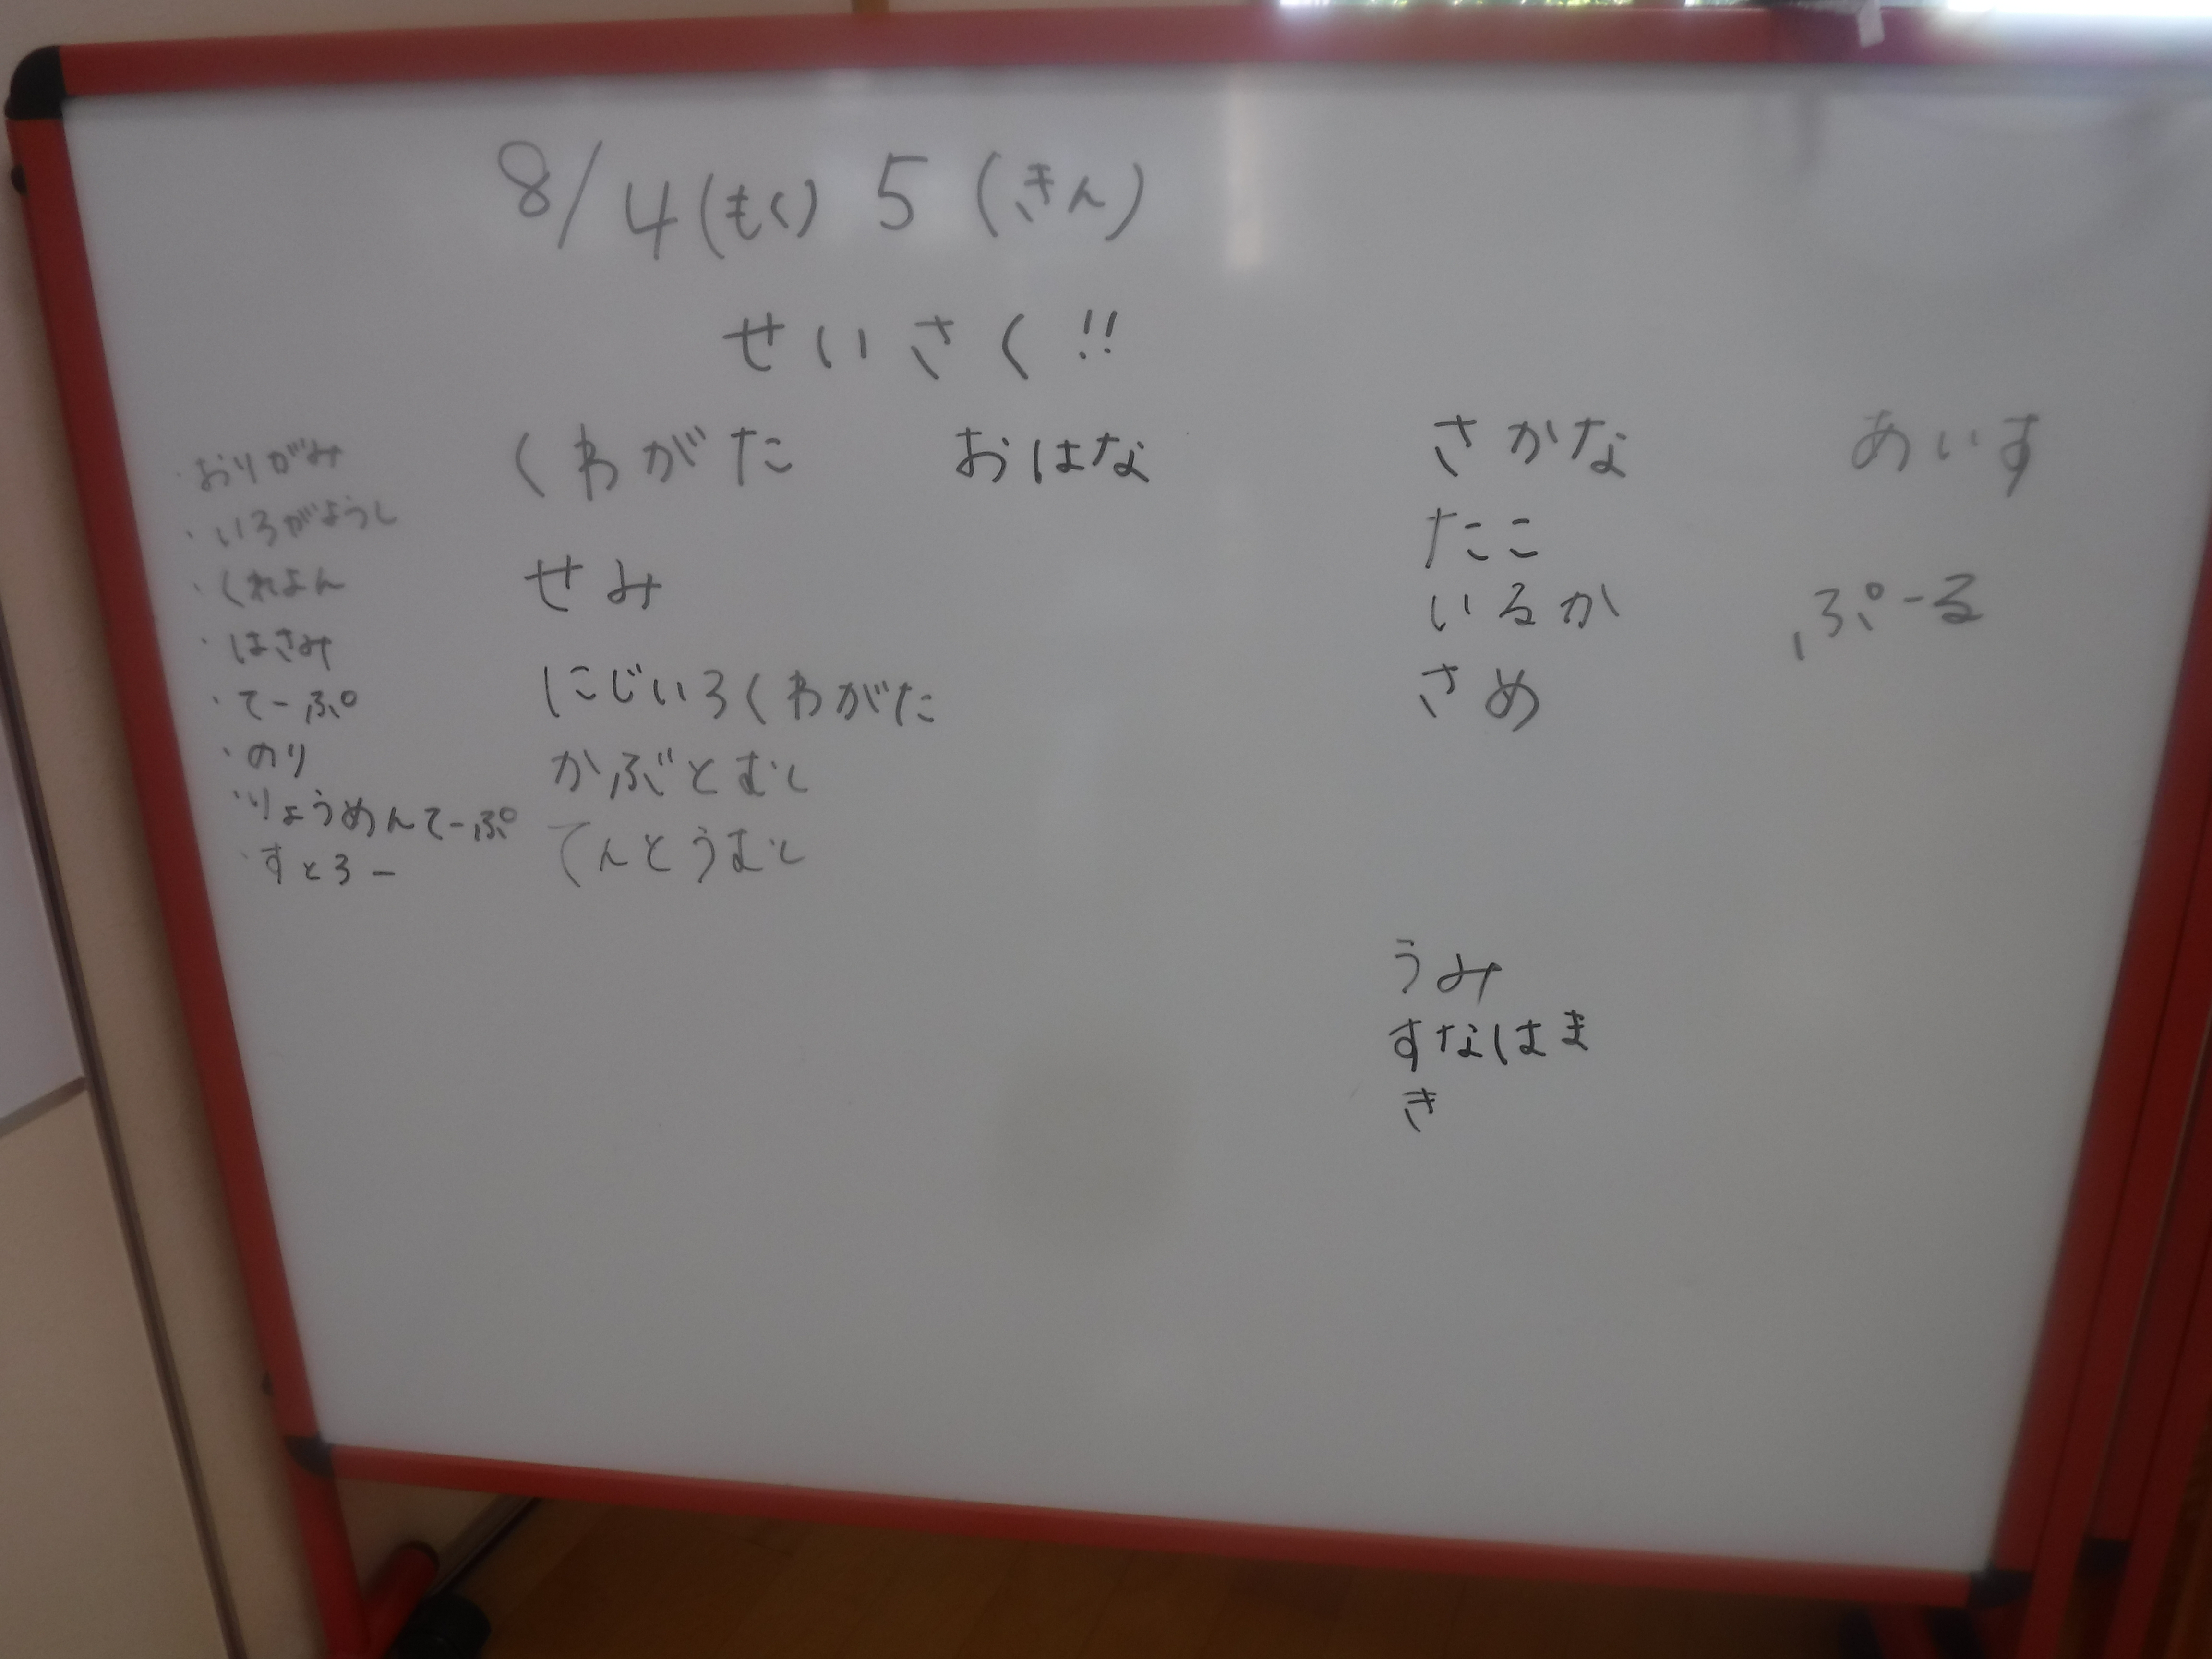 8/4(もく) 5(きん)
せいさく!!
・おりがみ
・いろがようし
・くれよん
・はさみ
・てーぷ
・のり
・りょうめんてーぷ
・すとろー
くわがた
せみ
にじいろくわがた
かぶとむし
てんとうむし
おはな
さかな
たこ
いるか
さめ
うみ
すなはま
き
あいす
ぷーる